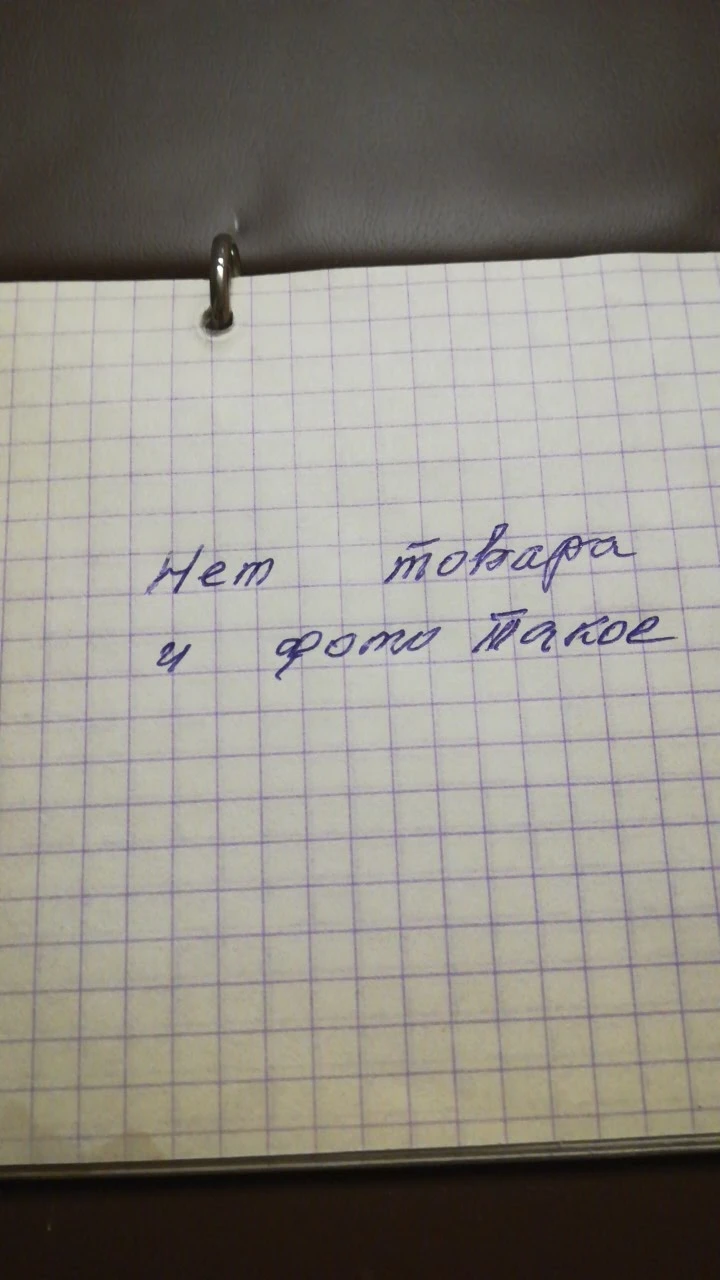 Нет товара
и фото такое